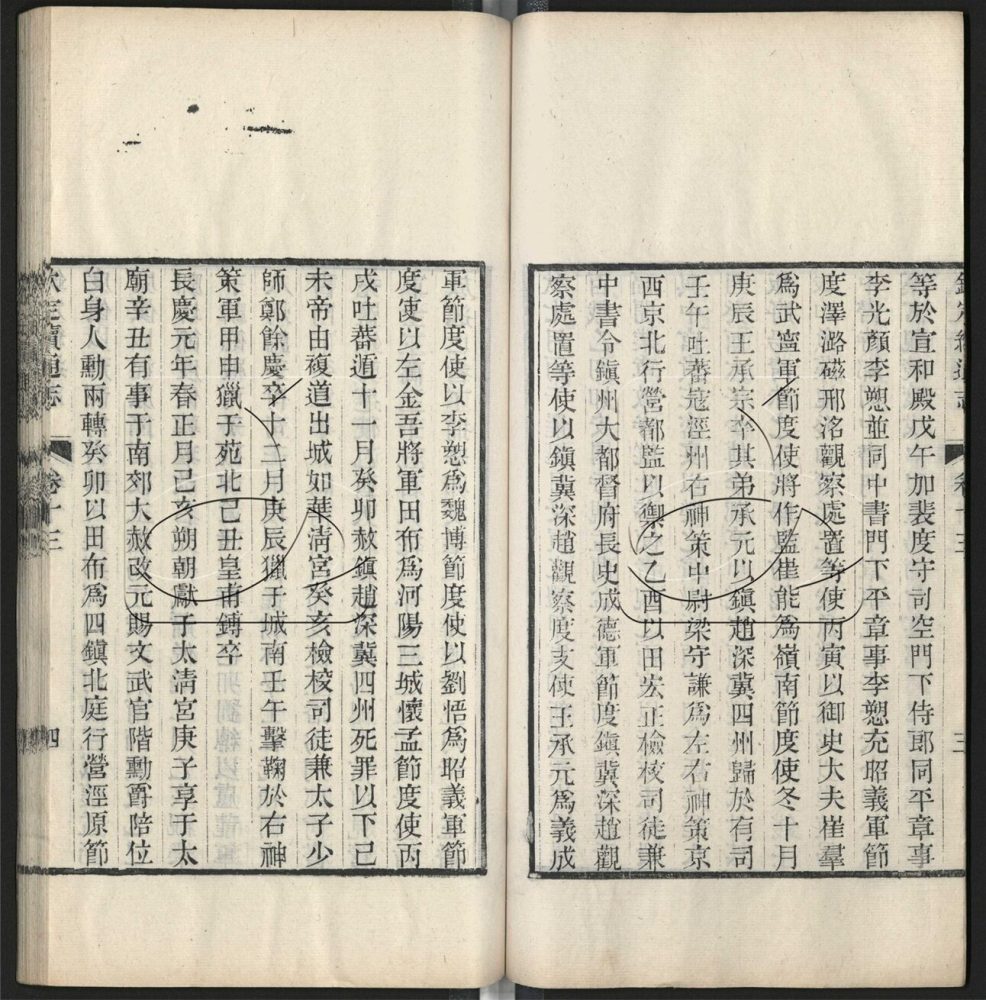 等於宣和殿戊午加裴度守司空門下侍郎同平章事
李光顏李愬並同中書門下平章事李愬充昭義軍節
度澤潞磁邢洺觀察處置等使丙寅以御史大夫崔羣
爲武寧軍節度使將作監崔能爲嶺南節度使冬十月
庚辰王承宗卒其弟承元以鎮趙深冀四州歸於有司
壬午吐蕃寇涇州右神策中尉梁守謙爲左右神策京
西京北行營都監以禦之乙酉以田宏正檢校司徒兼
中書令鎮州大都督府長史成德軍節度鎮冀深趙觀
察處置等使以鎮冀深趙觀察度支使王承元爲義成
軍節度使以李愬爲魏博節度使以劉悟爲昭義軍節
度使以左金吾將軍田布爲河陽三城懷孟節度使丙
戌吐蕃遁十一月癸卯赦鎮趙深冀四州死罪以下己
未帝由複道出城如華淸宮癸亥檢校司徒兼太子少
師鄭餘慶卒十二月庚辰獵于城南壬午擊鞠於右神
策軍甲申獵于苑北己丑皇甫鏄卒
長慶元年春正月己亥朔朝獻于太淸宮庚子享于太
廟辛丑有事于南郊大赦改元賜文武官階勳爵陪位
白身人勳兩轉癸卯以田布爲四鎮北庭行營涇原節
欽定續通志
卷十三
四